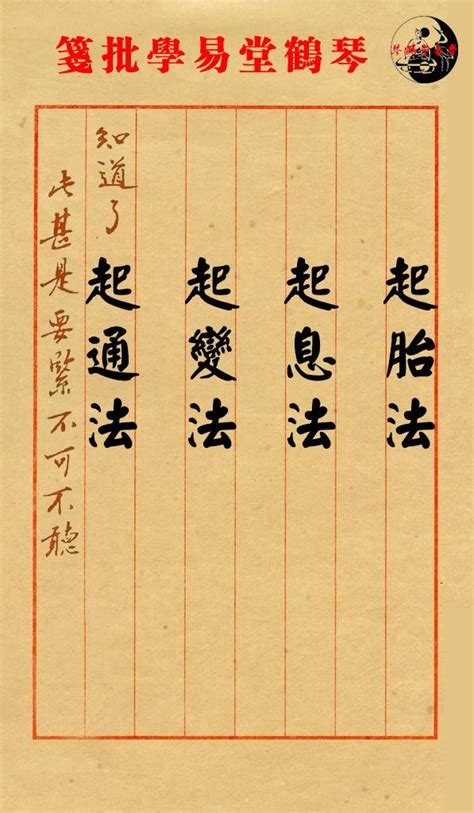 琴鶴堂易學批箋
起胎法
起息法
起變法
起通法
知道了
此甚是要緊不可不聽